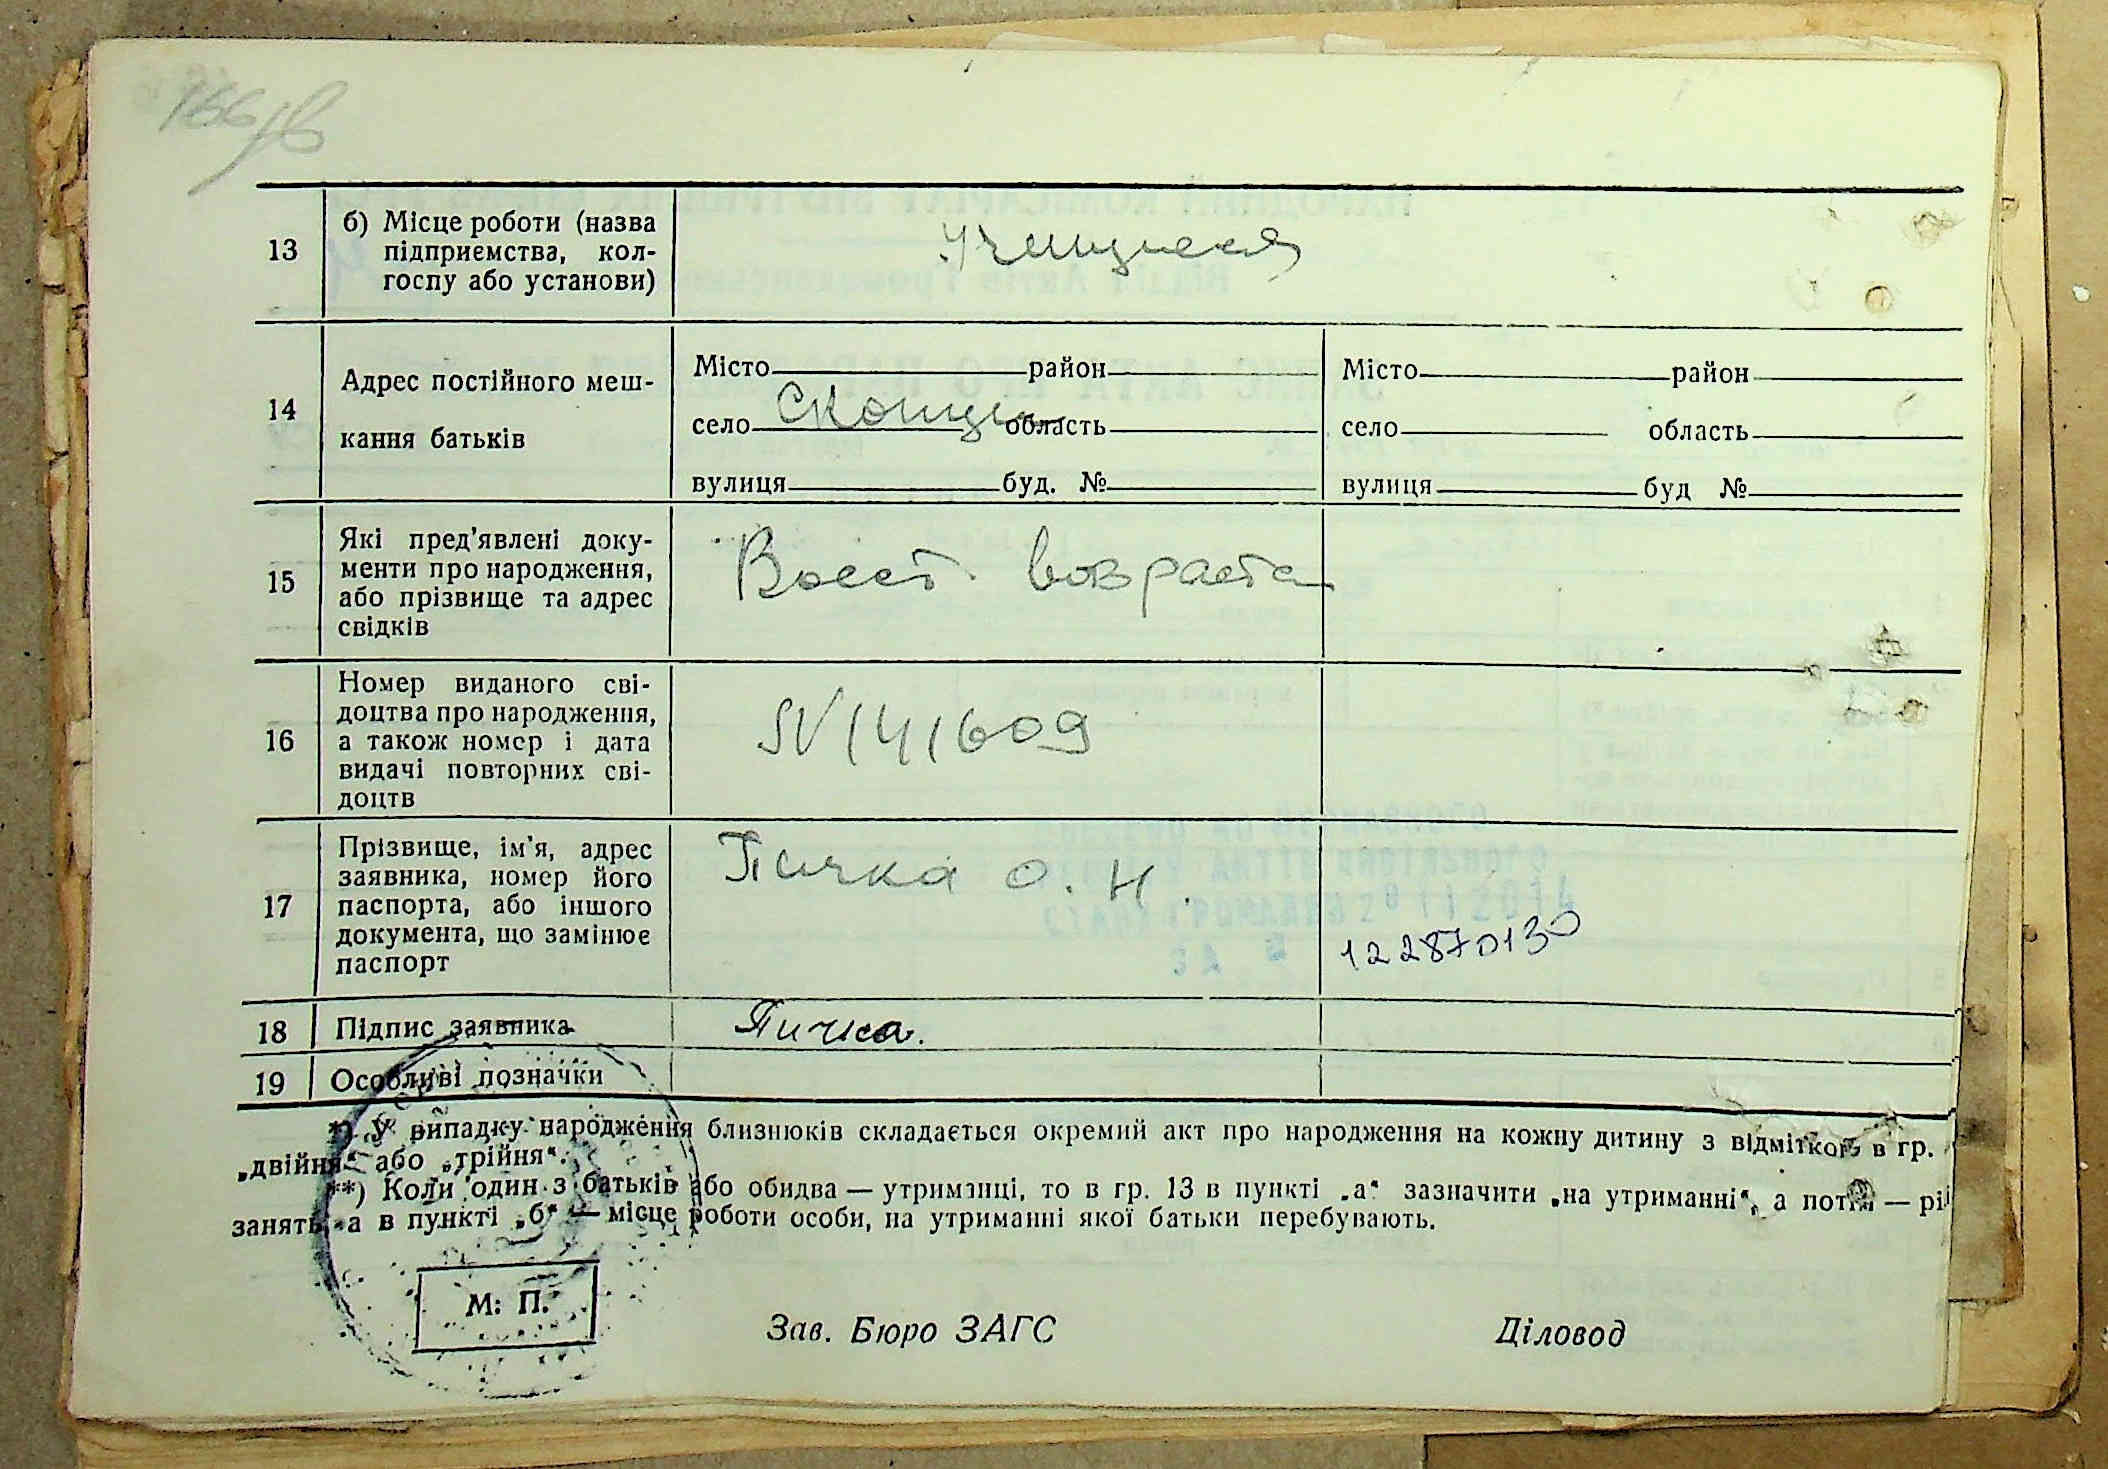 13
б) Місце роботи (назва
підприємства, кол-
госпу або установи)
Учащиеся
14
Адрес постійного меш-
кання батьків
Місто район
село Скотци область
вулиця буд. №
Місто район
село область
вулиця буд №
15
Які пред'явлені доку-
менти про народження,
або прізвище та адрес
свідків
Восст. возраста
16
Номер виданого сві-
доцтва про народження,
а також номер і дата
видачі повторних сві-
доцтв
141609
17
Прізвище, ім'я, адрес
заявника, номер його
паспорта, або іншого
документа, що замінює
паспорт
Пичка О. Н.
122870130
18 Підпис заявника
Пичка.
19 Особливі позначки
*) У випадку народження близнюків складається окремий акт про народження на кожну дитину з відміткою в гр.
„двійня“ або „трійня“.
**) Коли один з батьків або обидва — утриманці, то в гр. 13 в пункті „а“ зазначити „на утриманні“, а потім — рі
занять, а в пункті „б“ — місце роботи особи, на утриманні якої батьки перебувають.
М. П.
Зав. Бюро ЗАГС
Діловод